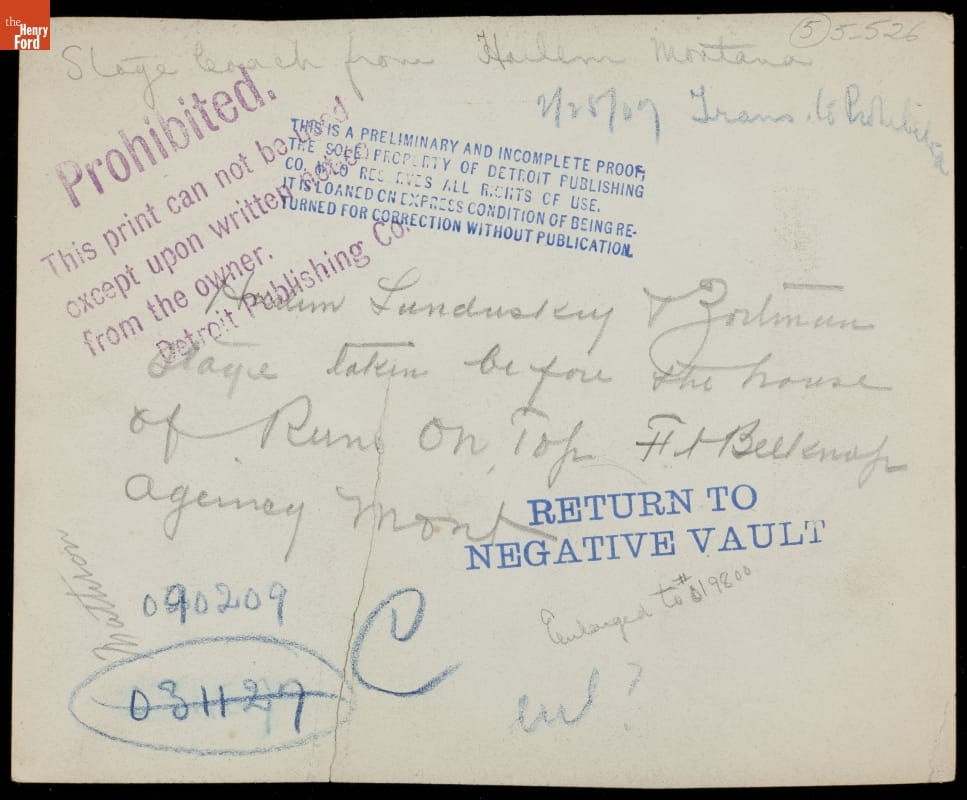 the
Henry
Ford
(5) 5-526
Stage Coach from Harlem Montana
2/25/09 Trans. to Prohibited
Prohibited.
This print can not be used
except upon written notice
from the owner.
Detroit Publishing Co.
THIS IS A PRELIMINARY AND INCOMPLETE PROOF,
THE SOLE PROPERTY OF DETROIT PUBLISHING
CO. WHO RESERVES ALL RIGHTS OF USE.
IT IS LOANED ON EXPRESS CONDITION OF BEING RE-
TURNED FOR CORRECTION WITHOUT PUBLICATION.
Harlem Landuskey & Zortman
Stage taken before the house
of Runs On Top Ft Belknap
Agency Mont
RETURN TO
NEGATIVE VAULT
090209
Enlarged to # 019800
C
031127